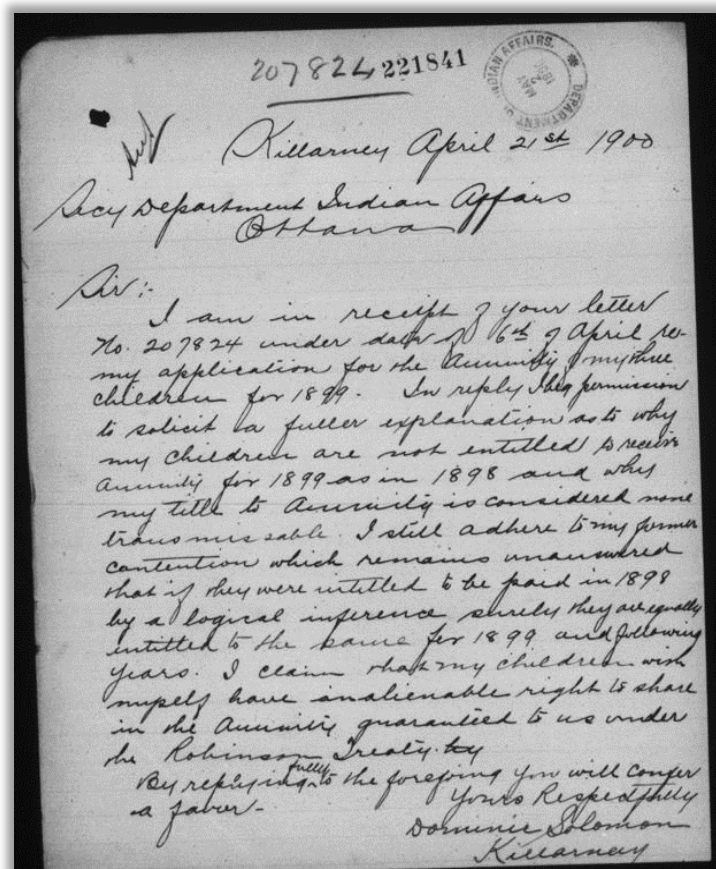 207824 221841
DEPARTMENT OF INDIAN AFFAIRS.
MAY
Killarney April 21st 1900
Secy Department Indian Affairs
Ottawa
Sir:-
I am in receipt of your letter
No. 207824 under date of 6th of April re-
my application for the Annuity of my three
children for 1899. In reply I beg permission
to solicit a fuller explanation as to why
my children are not entitled to receive
Annuity for 1899 as in 1898 and why
my title to Annuity is considered none
transmissable. I still adhere to my former
contention which remains unanswered
that if they were intitled to be paid in 1898
by a logical inference surely they are equally
entitled to the same for 1899 and following
years. I claim that my children with
myself have inalienable right to share
in the Annuity guarantied to us under
the Robinson Treaty. by
By replying fully to the foregoing you will confer
a favor-
Yours Respectfully
Dominic Solomon
Killarney